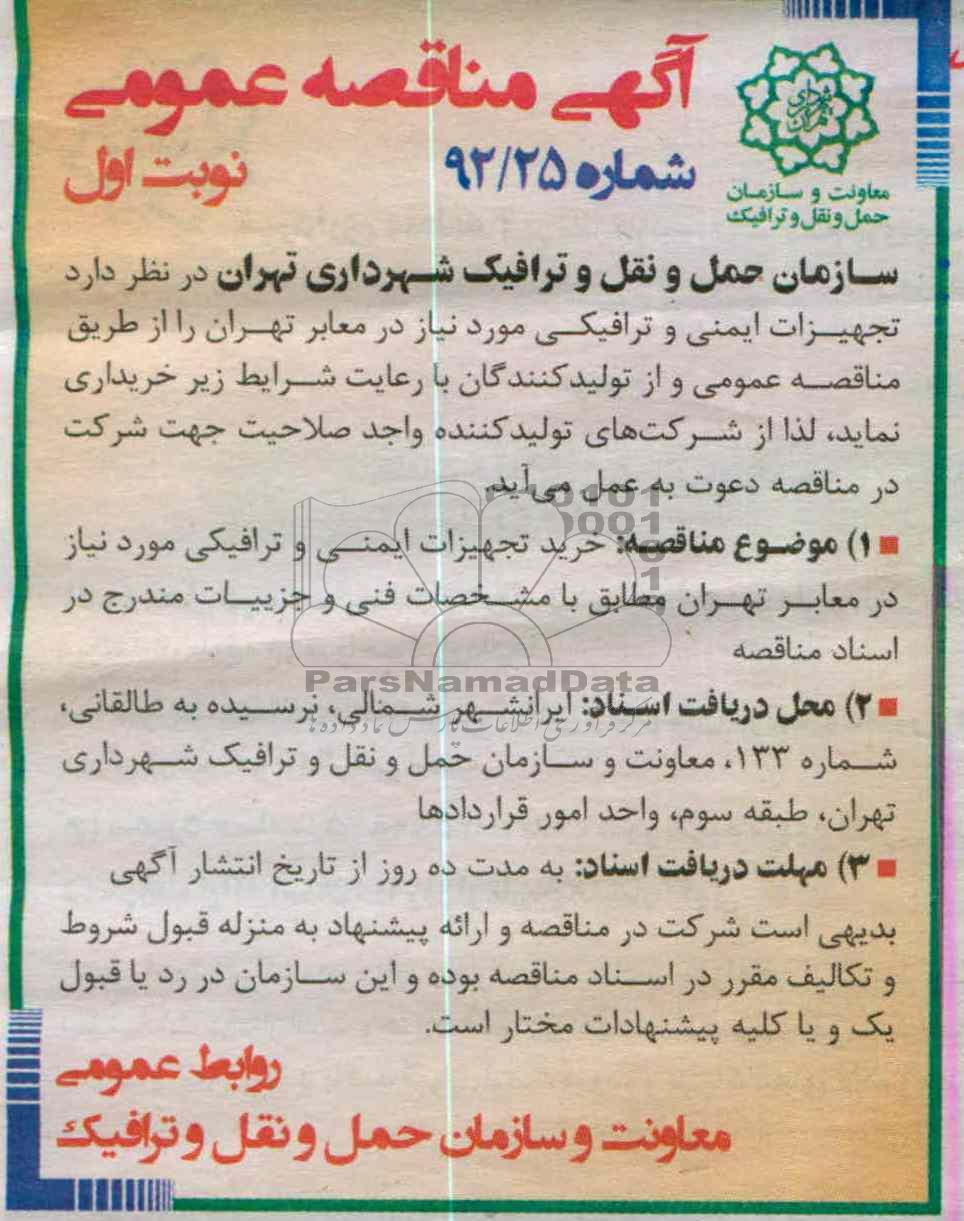 آگهی مناقصه عمومی
شماره ۹۲/۲۵
نوبت اول
شهرداری تهران
معاونت و سازمان
حمل و نقل و ترافیک
سازمان حمل و نقل و ترافیک شهرداری تهران در نظر دارد
تجهیزات ایمنی و ترافیکی مورد نیاز در معابر تهران را از طریق
مناقصه عمومی و از تولیدکنندگان با رعایت شرایط زیر خریداری
نماید، لذا از شرکت‌های تولیدکننده واجد صلاحیت جهت شرکت
در مناقصه دعوت به عمل می‌آید.
۱) موضوع مناقصه: خرید تجهیزات ایمنی و ترافیکی مورد نیاز
در معابر تهران مطابق با مشخصات فنی و جزییات مندرج در
اسناد مناقصه
ParsNamadData
۲) محل دریافت اسناد: ایرانشهر شمالی، نرسیده به طالقانی،
مرکز فرآوری اطلاعات پارس نماد داده ها
شماره ۱۳۳، معاونت و سازمان حمل و نقل و ترافیک شهرداری
تهران، طبقه سوم، واحد امور قراردادها
۳) مهلت دریافت اسناد: به مدت ده روز از تاریخ انتشار آگهی
بدیهی است شرکت در مناقصه و ارائه پیشنهاد به منزله قبول شروط
و تکالیف مقرر در اسناد مناقصه بوده و این سازمان در رد یا قبول
یک و یا کلیه پیشنهادات مختار است.
روابط عمومی
معاونت و سازمان حمل و نقل و ترافیک